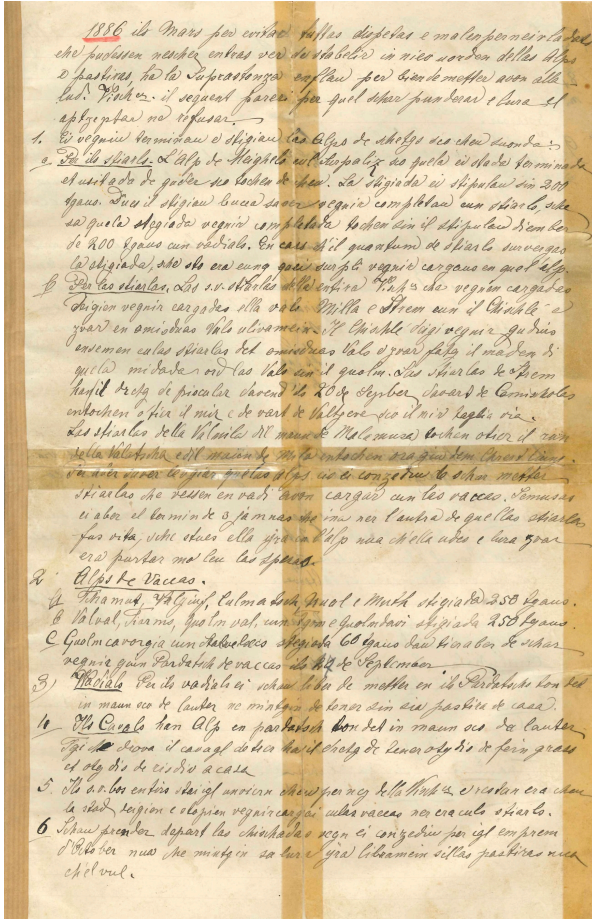 1886 ilo Mars per evitar tuttas dispetas e malenperneivladats
che pudessen nescher entras ver da stabelir in niev uorden dellas Alps
e pastiras, ha la Suprastonza enflau per bien de metter avon alla
lud. Vischn. il sequent pareri per quel schar ponderar e lura el
aptzeptar ne refusar.
1. Ei vegniu terminau e stigiau las Alps de sheftgs sco cheu suonda.
a Per ils stiarls. L'alp de quela ei stada terminada
et usitada de guder sco tochen de cheu. La stigiada ei stipulau sin 200
tgaus. Duei il stigiau bucca saver vegnir completau cun stiarls, sche
sa quela stegiada vegnir completada tochen sin il stipulau diember
de 200 tgaus cun vadials. En cass ch'il quantum de stiarls survergass
la stigiada, sche sto era quei surpli vegnir cargaus en quol alp.
b Per las stiarlas. Las s.v. stiarlas della entira che vegnin cargadas
deigien vegnir cargadas ella vals Milla e Strem cun il Chishlè e
zvar en omisduas Vals ulivamein. Il Chishle deigi vegnir gudius
ensemen cu las stiarlas det omisduas Vals e zvar fatg il maden di
quela midada ord las Vals sin il quolm. Las stiarlas de Strem
han il dretg de pascular davend ilo 20 de Sepber davart de Camischolas
entochen o tier il mir e de vart de Valtgeva sco il mir taglia via.
Las stiarlas della Valavila dil maun de Molomusa tochen otier il run
della Valatscha e dil maun de Mila entochen ora
quelas alps ei conzediu de schar metter
stiarlas che dessen en vadi avon cargar cun las vaccas. Semussas
ei aber el termin de 3 jamnas che ina ner l'autra de quellas stiarlas
fus vita, sche stues ella ira en l'alp nua ch'ella udes e lura zvar
era purtar mo leu las spesas.
2 Alps de Vaccas.
a Tschamut, Culmatsch, Nual e Muth stigiada 250 tgaus.
b Valval, Surms, quolm val, cun quolmdavi stigiada 250 tgaus.
c Quolm cavorgia cun stegiada 60 tgaus dau tier aber de schar
vegnir giu en Pardatsch de vaccas ilo de September
3) Vadials Per ils vadials ei schau liber de metter en ils Pardatschs ton det
in maun sco de lauter ne mintgin de tener sin sia pastira de casa.
4. Ils Cavals han Alp en pardatsch ton det in maun sco da lauter
il casagl de tier han il dretg de tener otg dis de fern grass
et otg dis de risdiv a casa
5 Ils s.v. bos entirs stai gl uviern cheu della Vischn. e restan era cheu
la stad, deigien e stopien vegnir cargai cu las vaccas ner era culs stiarls.
6 Schau prender dapart las chischadas vegn ei conzediu per gl emprem
d'October nua che mintgin sa lura ira liberamein sillas pastiras nua
ch'el vul.